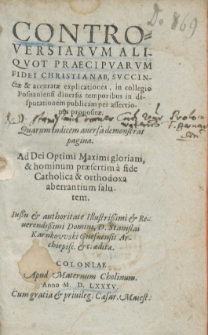 D. 869
CONTRO-
VERSIARVM ALI-
QVOT PRAECIPVARVM
FIDEI CHRISTIANAE, SVCCIN-
ctæ & accuratæ explicationes, in collegio
Posnaniensi diuersis temporibus in di-
sputationem publicam per assertio-
nes propositæ.
Quarum indicem auersa demonstrat
pagina.
Ad Dei Optimi Maximi gloriam,
& hominum præsertim à fide
Catholica & orthodoxa
aberrantium salu-
tem.
Iussu & authoritate Illustrissimi & Re-
uerendissimi Domini, D. Stanislai
Karnkowski Gnesnensis Ar-
chiepisc. &c. ædita.
COLONIAE
Apud Maternum Cholinum.
Anno M. D. LXXXV.
Cum gratia & priuileg. Cæsar. Maiest.